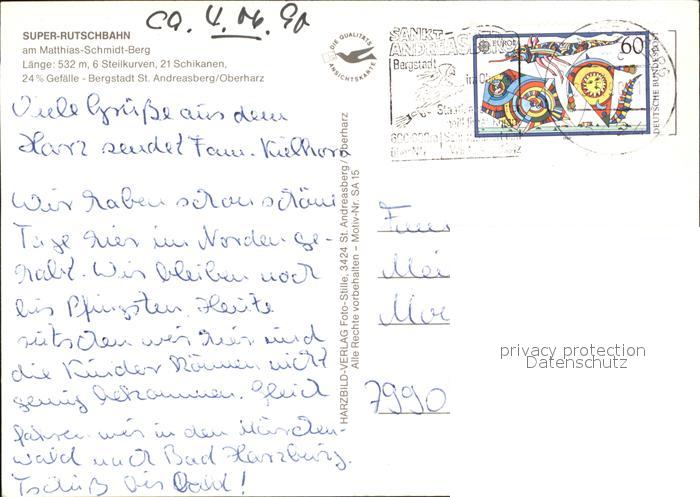 ca. 4. 06. 90
SUPER-RUTSCHBAHN
am Matthias-Schmidt-Berg
Länge: 532 m, 6 Steilkurven, 21 Schikanen,
24 % Gefälle - Bergstadt St. Andreasberg/Oberharz
DIE QUALITÄTS
ANSICHTSKARTE
SANKT
ANDREASBERG
Bergstadt
EUROPA
60
DEUTSCHE BUNDESPOST
Viele Grüße aus dem
Harz sendet Fam.
Wir haben schon schöne
Tage hier im Norden ge-
habt. Wir bleiben noch
bis Pfingsten. Heute
rutschen wir hier und
die Kinder können nicht
genug bekommen. Gleich
fahren wir in den Märchen-
wald nach Bad Harzburg.
Tschüß bis bald!
HARZBILD-VERLAG Foto-Stille, 3424 St. Andreasberg/Oberharz
Alle Rechte vorbehalten – Motiv-Nr. SA 15
Fam
7990
privacy protection
Datenschutz